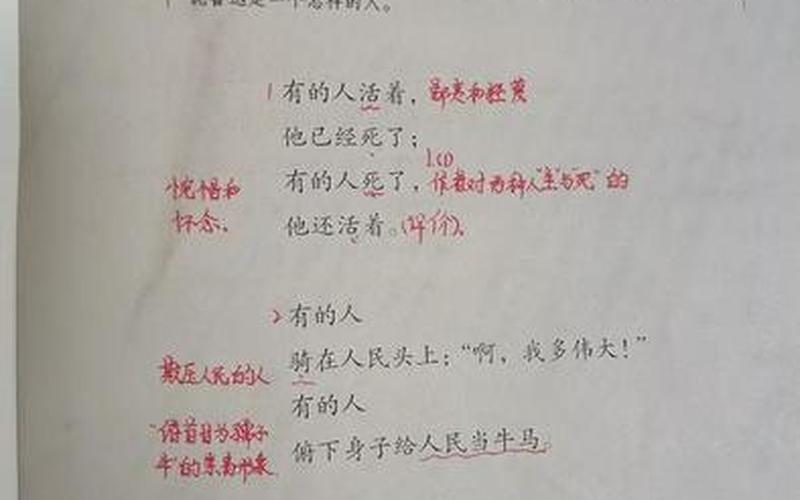 说着这是一个怎样的人。
1 有的人活着，鄙夷和轻蔑
他已经死了；
有的人死了，作者对两种人"生与死"的
惋惜和
怀念。
他还活着。(评价)。
2 有的人
骑在人民头上："啊，我多伟大！"
欺压人民的人
有的人
"俯首甘为孺子
牛"的崇高形象
俯下身子给人民当牛马。